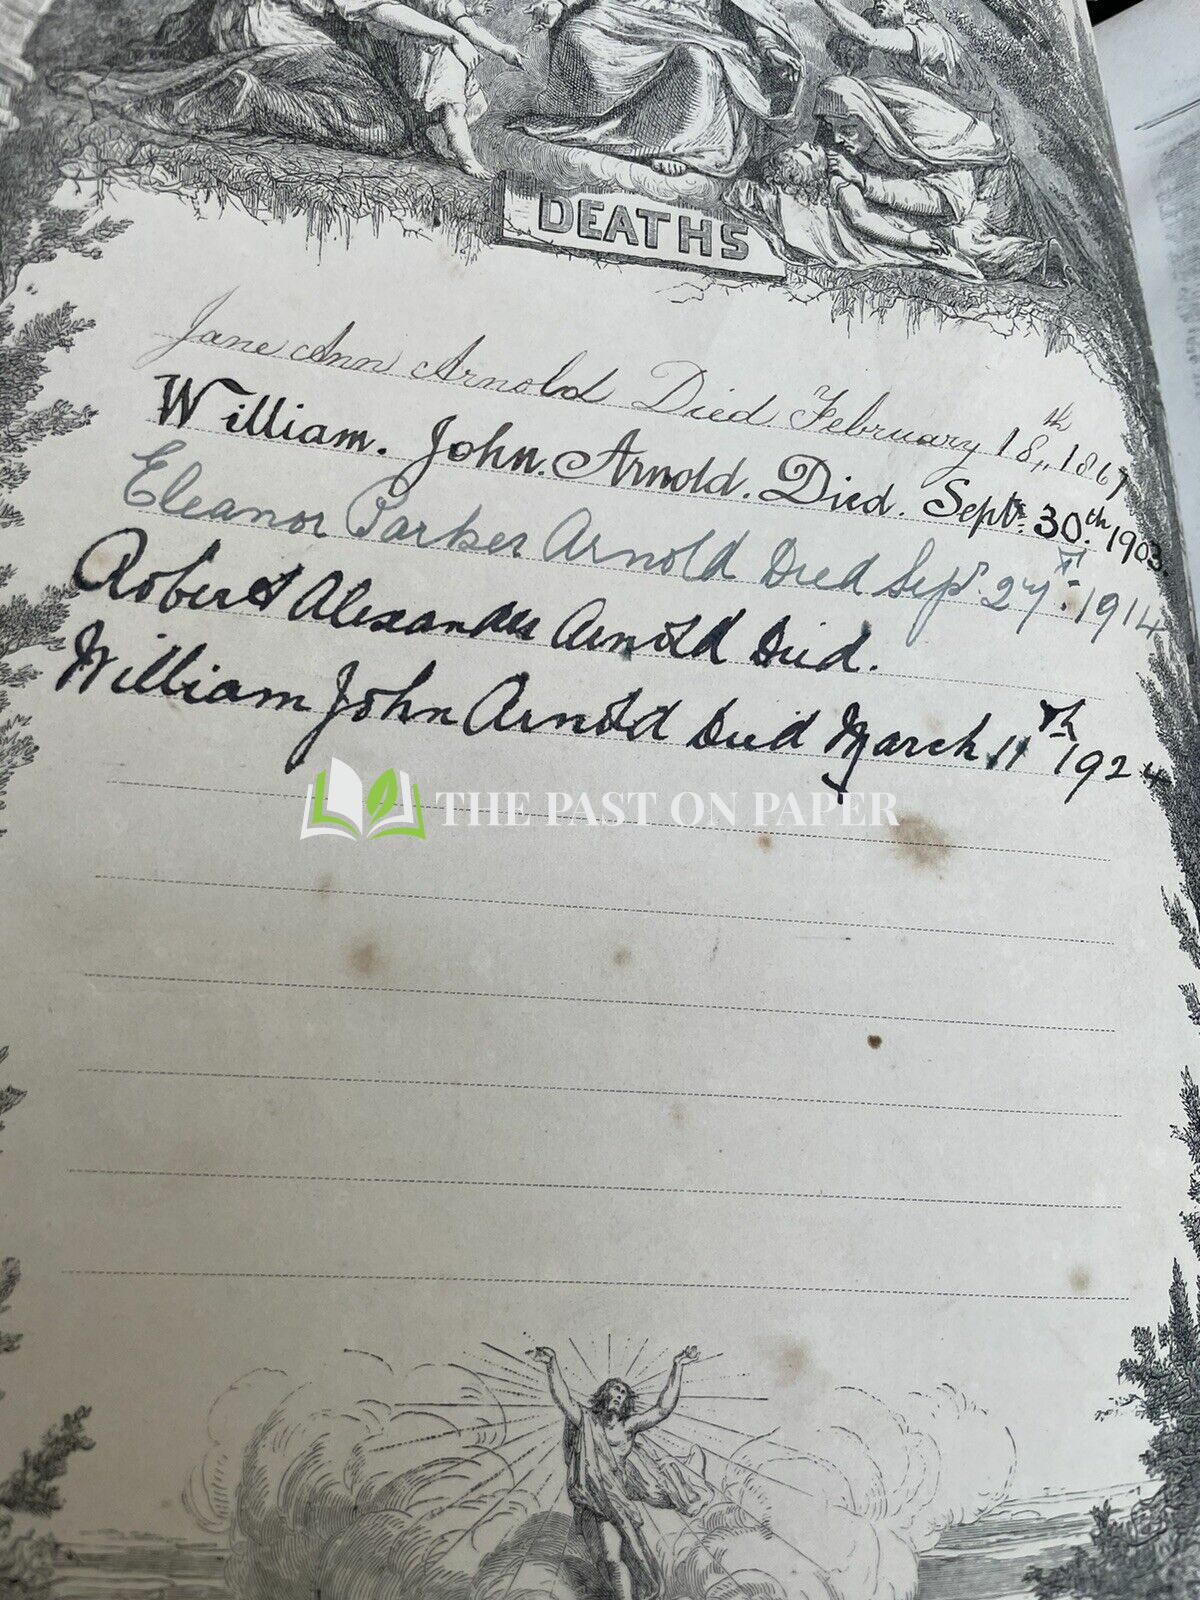 DEATHS
Jane Ann Arnold Died February 18th, 1867
William. John. Arnold. Died. Sept. 30.th 1903.
Eleanor Parker Arnold Died Sept. 27th. 1914
Robert Alexander Arnold Died.
William John Arnold Died March 11th 1924
THE PAST ON PAPER